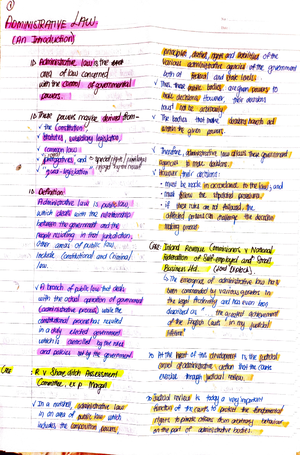 ①
ADMINISTRATIVE LAW.
(An Introduction)
1) Administrative law is the
area of law concerned
with the control of governmental
powers.
2) These powers maybe derived from-
✓ the Constitution,
✓ statutes, subsidiary legislation,
✓ common law
✓ prerogatives, and
✓ quasi-legislation
3) Definition:
Administrative law is public law
which deals with the relationship
between the government and the
people residing in that jurisdiction,
other areas of public law
include Constitutional and Criminal
law.
✓ A branch of public law that deals
with the actual operation of government
(administrative process) while the
constitutional process has resulted
in a duly elected government.
which is controlled by the rules
and policies set by the government.
Case: R v Shoreditch Assessment
Committee, ex p Morgan
✓ In a nutshell, administrative law
is an area of public law which
includes the
principles, duties, rights and liabilities of the
various administrative agencies of the government
both at federal and state levels.
✓ Thus, these public bodies are given powers to
make decisions. However, their decisions
must not be arbitrary.
✓ The bodies that make decisions must act
within the given powers.
✓ Therefore, administrative law allows these government
agencies to make decisions.
✓ However their decisions:
• must be made in accordance to the law; and
• must follow the stipulated procedures.
• if these rules are not followed, the
affected persons can challenge the decision
making process.
Case: Inland Revenue Commissioners v National
Federation of Self-employed and Small
Business Ltd. (Lord Diplock).
is the emergence of administrative law has
been commended by various quarters in
the legal fraternity and has even been
described as "... the greatest achievement
of the English Courts in my judicial
lifetime"
✓ At the heart of this development is the judicial
control of administrative action that the courts
exercise through judicial review.
✓ Judicial review is today a very important
function of the courts to protect the fundamental
rights of private citizens from arbitrary behaviour
on the part of administrative bodies.